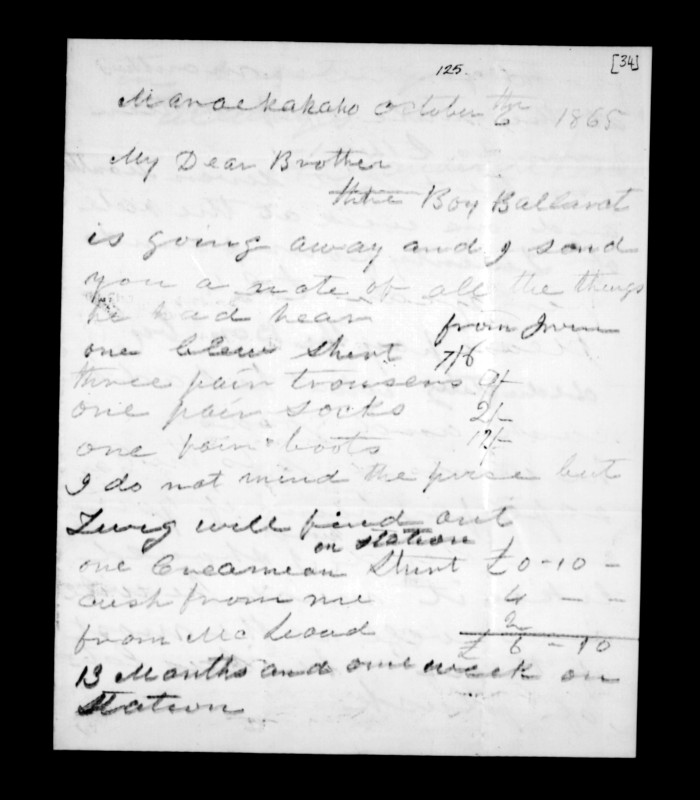 [34]
125.
Manaekakaho October 6th 1865
My Dear Brother
the Boy Ballarat
is going away and I send
you a note of all the things
he had hear
from Irvin
one blew Shirt 7/6
three pair trousers 9/-
one pair socks 2/-
one pair boots 17/-
I do not mind the prise but
will find out
on station
one Creamean Shirt £0-10-
cash from me 4 - -
from McLeoad 2
£ 6-10
13 Months and one week on
Station